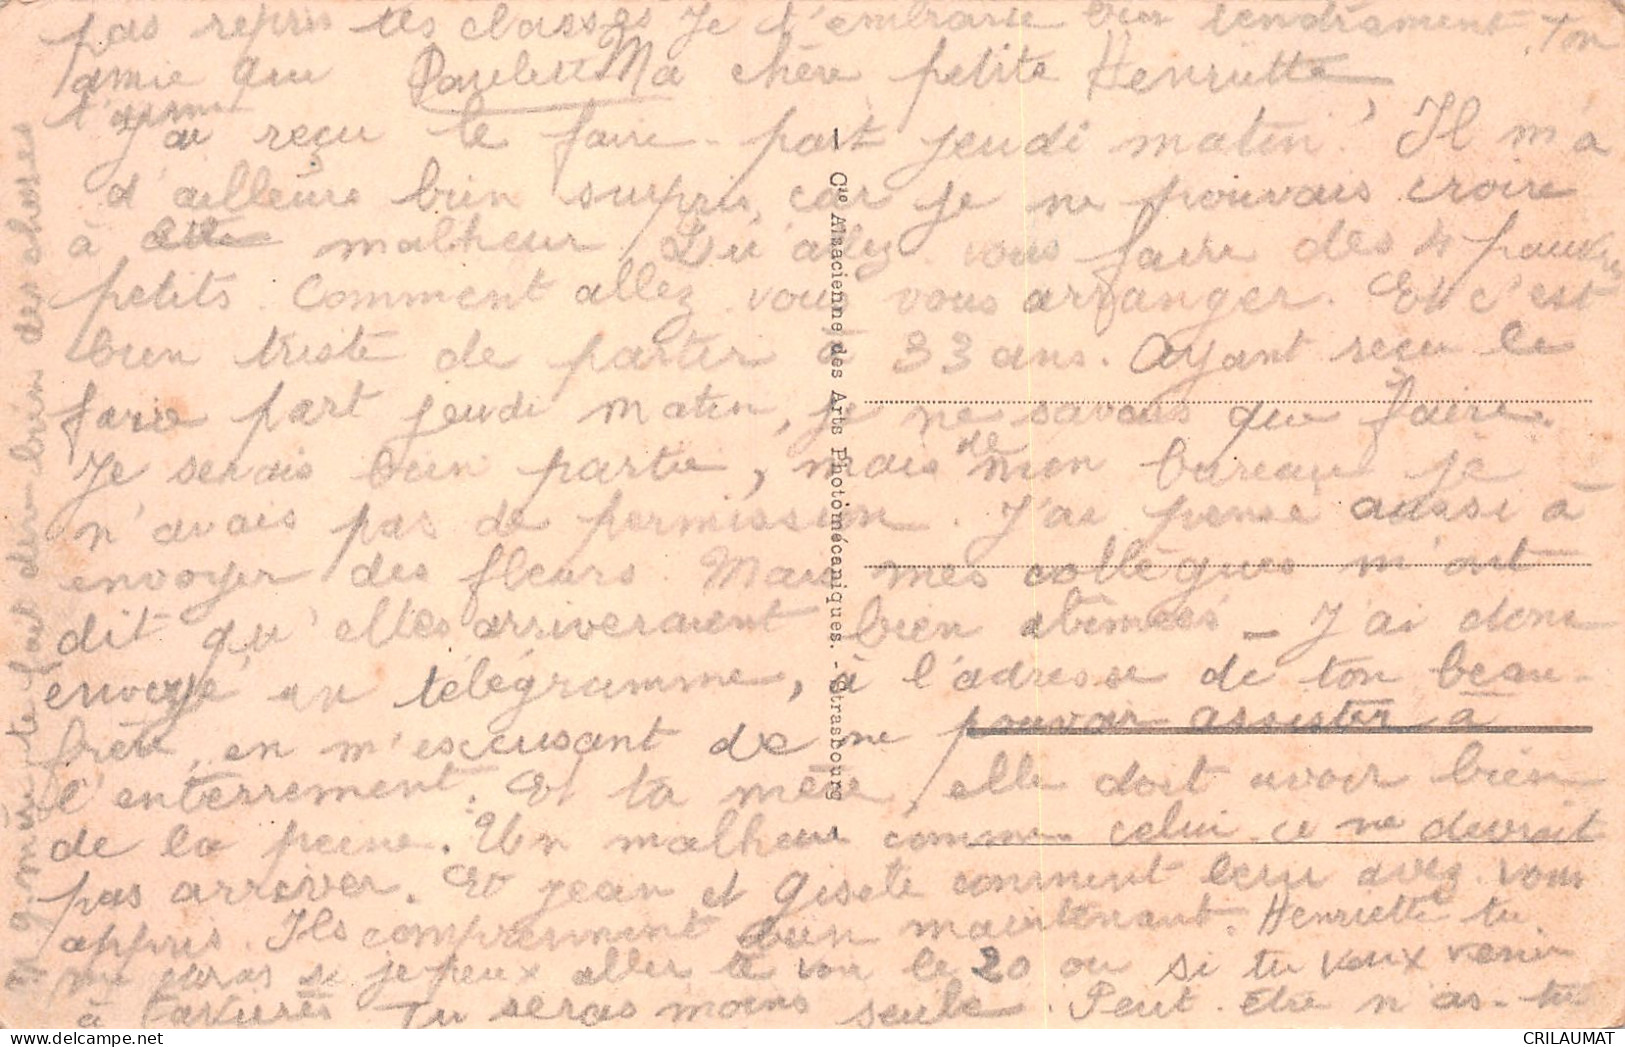 pas repris tes classes Je t'embrasse bien tendrement Ton
amie qui Paulette Ma chère petite Henriette
t'aime
J'ai reçu le faire-part jeudi matin. Il m'a
d'ailleurs bien surpris, car je ne pouvais croire
à malheur. Qu'allez vous faire des 4 pauvres
petits. Comment allez vous vous arranger. Et c'est
bien triste de partir à 33 ans. Ayant reçu le
faire part jeudi matin, je ne savais que faire.
Je serais bien partie, mais de mon bureau je
n'avais pas de permission. J'ai pensé aussi à
envoyer des fleurs. Mais mes collègues m'ont
dit qu'elles arriveraient bien abîmées - J'ai donc
envoyé un télégramme, à l'adresse de ton beau-
frère, en m'excusant de ne pouvoir assister à
l'enterrement. Et ta mère, elle doit avoir bien
de la peine. Un malheur comme celui ce ne devrait
pas arriver. Et Jean et Gisèle comment leur avez vous
appris. Ils comprennent bien maintenant. Henriette tu
me diras si je peux aller te voir le 20 ou si tu veux venir
à Tu seras moins seule. Peut-être n'as-tu
des bien des choses
Cie Alsacienne des Arts Photomécaniques. - Strasbourg
CRILAUMAT